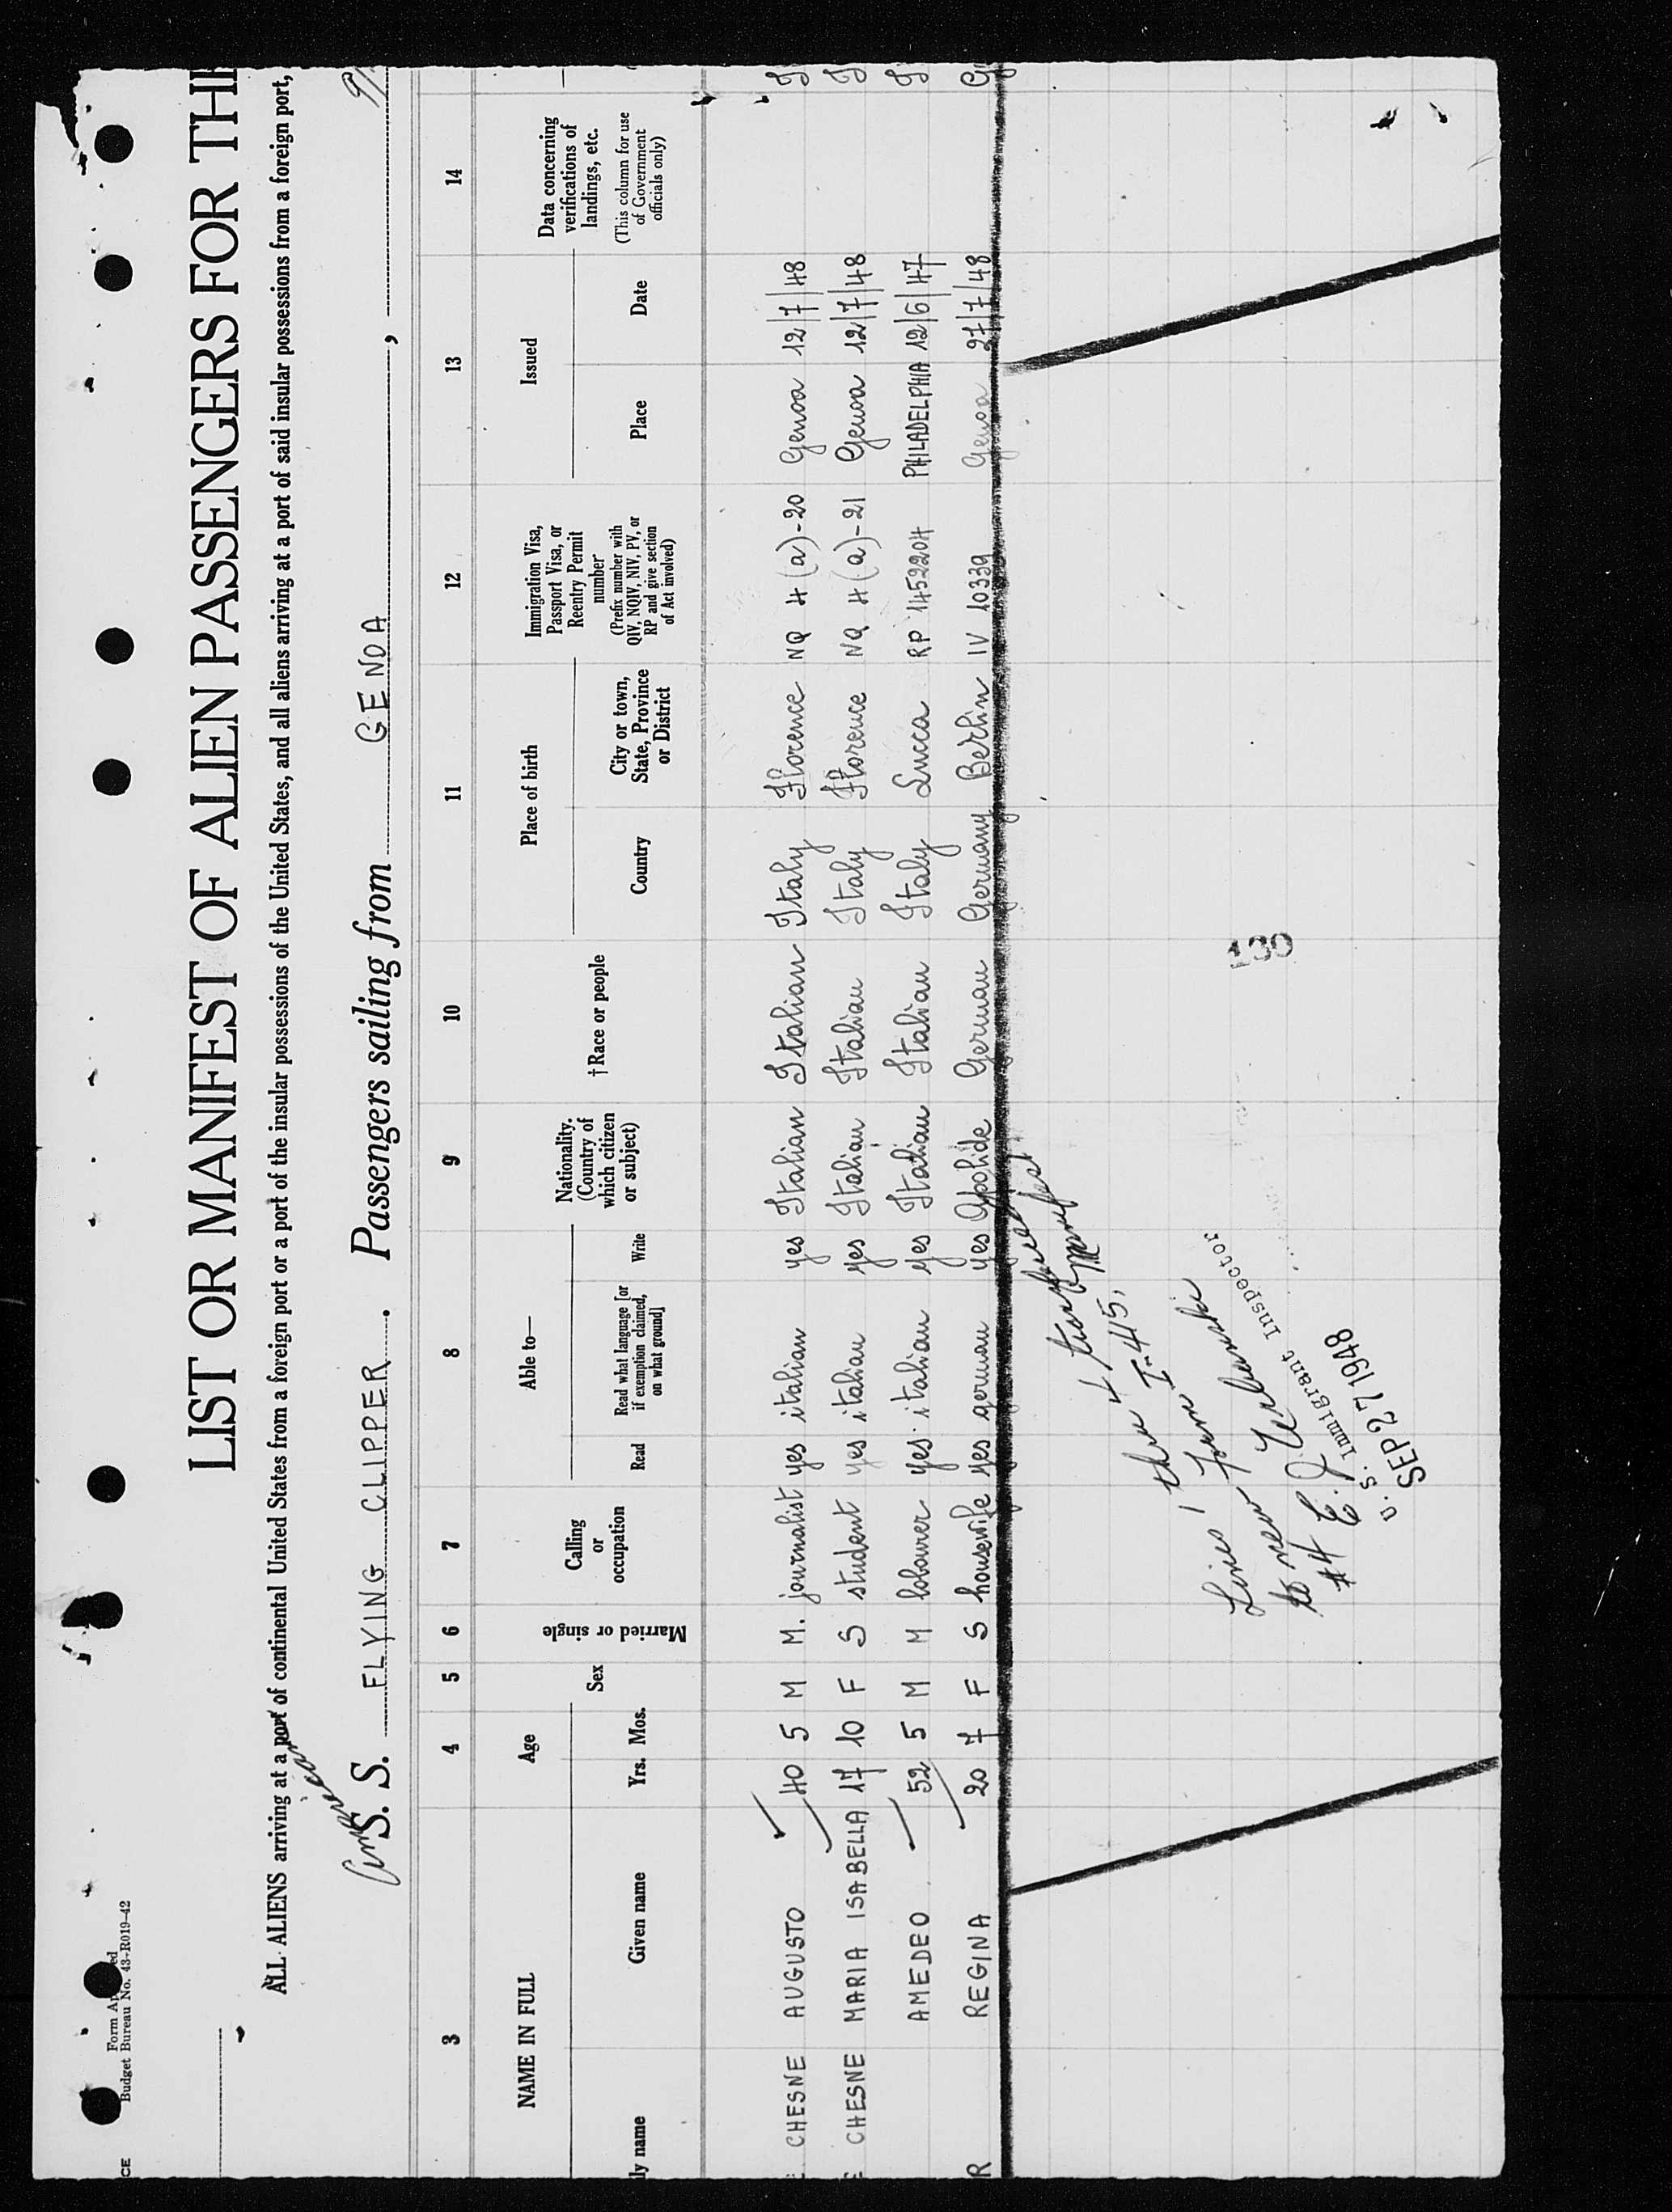 CE
Form Ap ed
Budget Bureau No. 43-R019-42
LIST OR MANIFEST OF ALIEN PASSENGERS FOR THE
ALL ALIENS arriving at a port of continental United States from a foreign port or a port of the insular possessions of the United States, and all aliens arriving at a port of said insular possessions from a foreign port,
S. S. FLYING CLIPPER. Passengers sailing from GENOA , 9/
3 4 5 6 7 8 9 10 11 12 13 14
NAME IN FULL
ly name Given name
Age
Yrs. Mos.
Sex
Married or single
Calling
or
occupation
Able to—
Read
Read what language [or
if exemption claimed,
on what ground]
Write
Nationality.
(Country of
which citizen
or subject)
†Race or people
Place of birth
Country
City or town,
State, Province
or District
Immigration Visa,
Passport Visa, or
Reentry Permit
number
(Prefix number with
QIV, NQIV, NIV, PV, or
RP and give section
of Act involved)
Issued
Place Date
Data concerning
verifications of
landings, etc.
(This column for use
of Government
officials only)
CHESNE AUGUSTO 40 5 M M. journalist yes italian yes Italian Italian Italy Florence NQ 4(a)-20 Genoa 12/7/48 I
CHESNE MARIA ISABELLA 17 10 F S student yes italian yes Italian Italian Italy Florence NQ 4(a)-21 Genoa 12/7/48 I
AMEDEO 52 5 M M labourer yes italian yes Italian Italian Italy Lucca RP 1452204 PHILADELPHIA 12/6/47 I
R REGINA 20 7 F S housewife yes german yes Apolide German Germany Berlin IV 10339 Genoa 27/7/48 G
Lines 1 thru 4 transferred
to new Form I-415, manifest
#4
U. S. Immigrant Inspector
SEP 27 1948
130